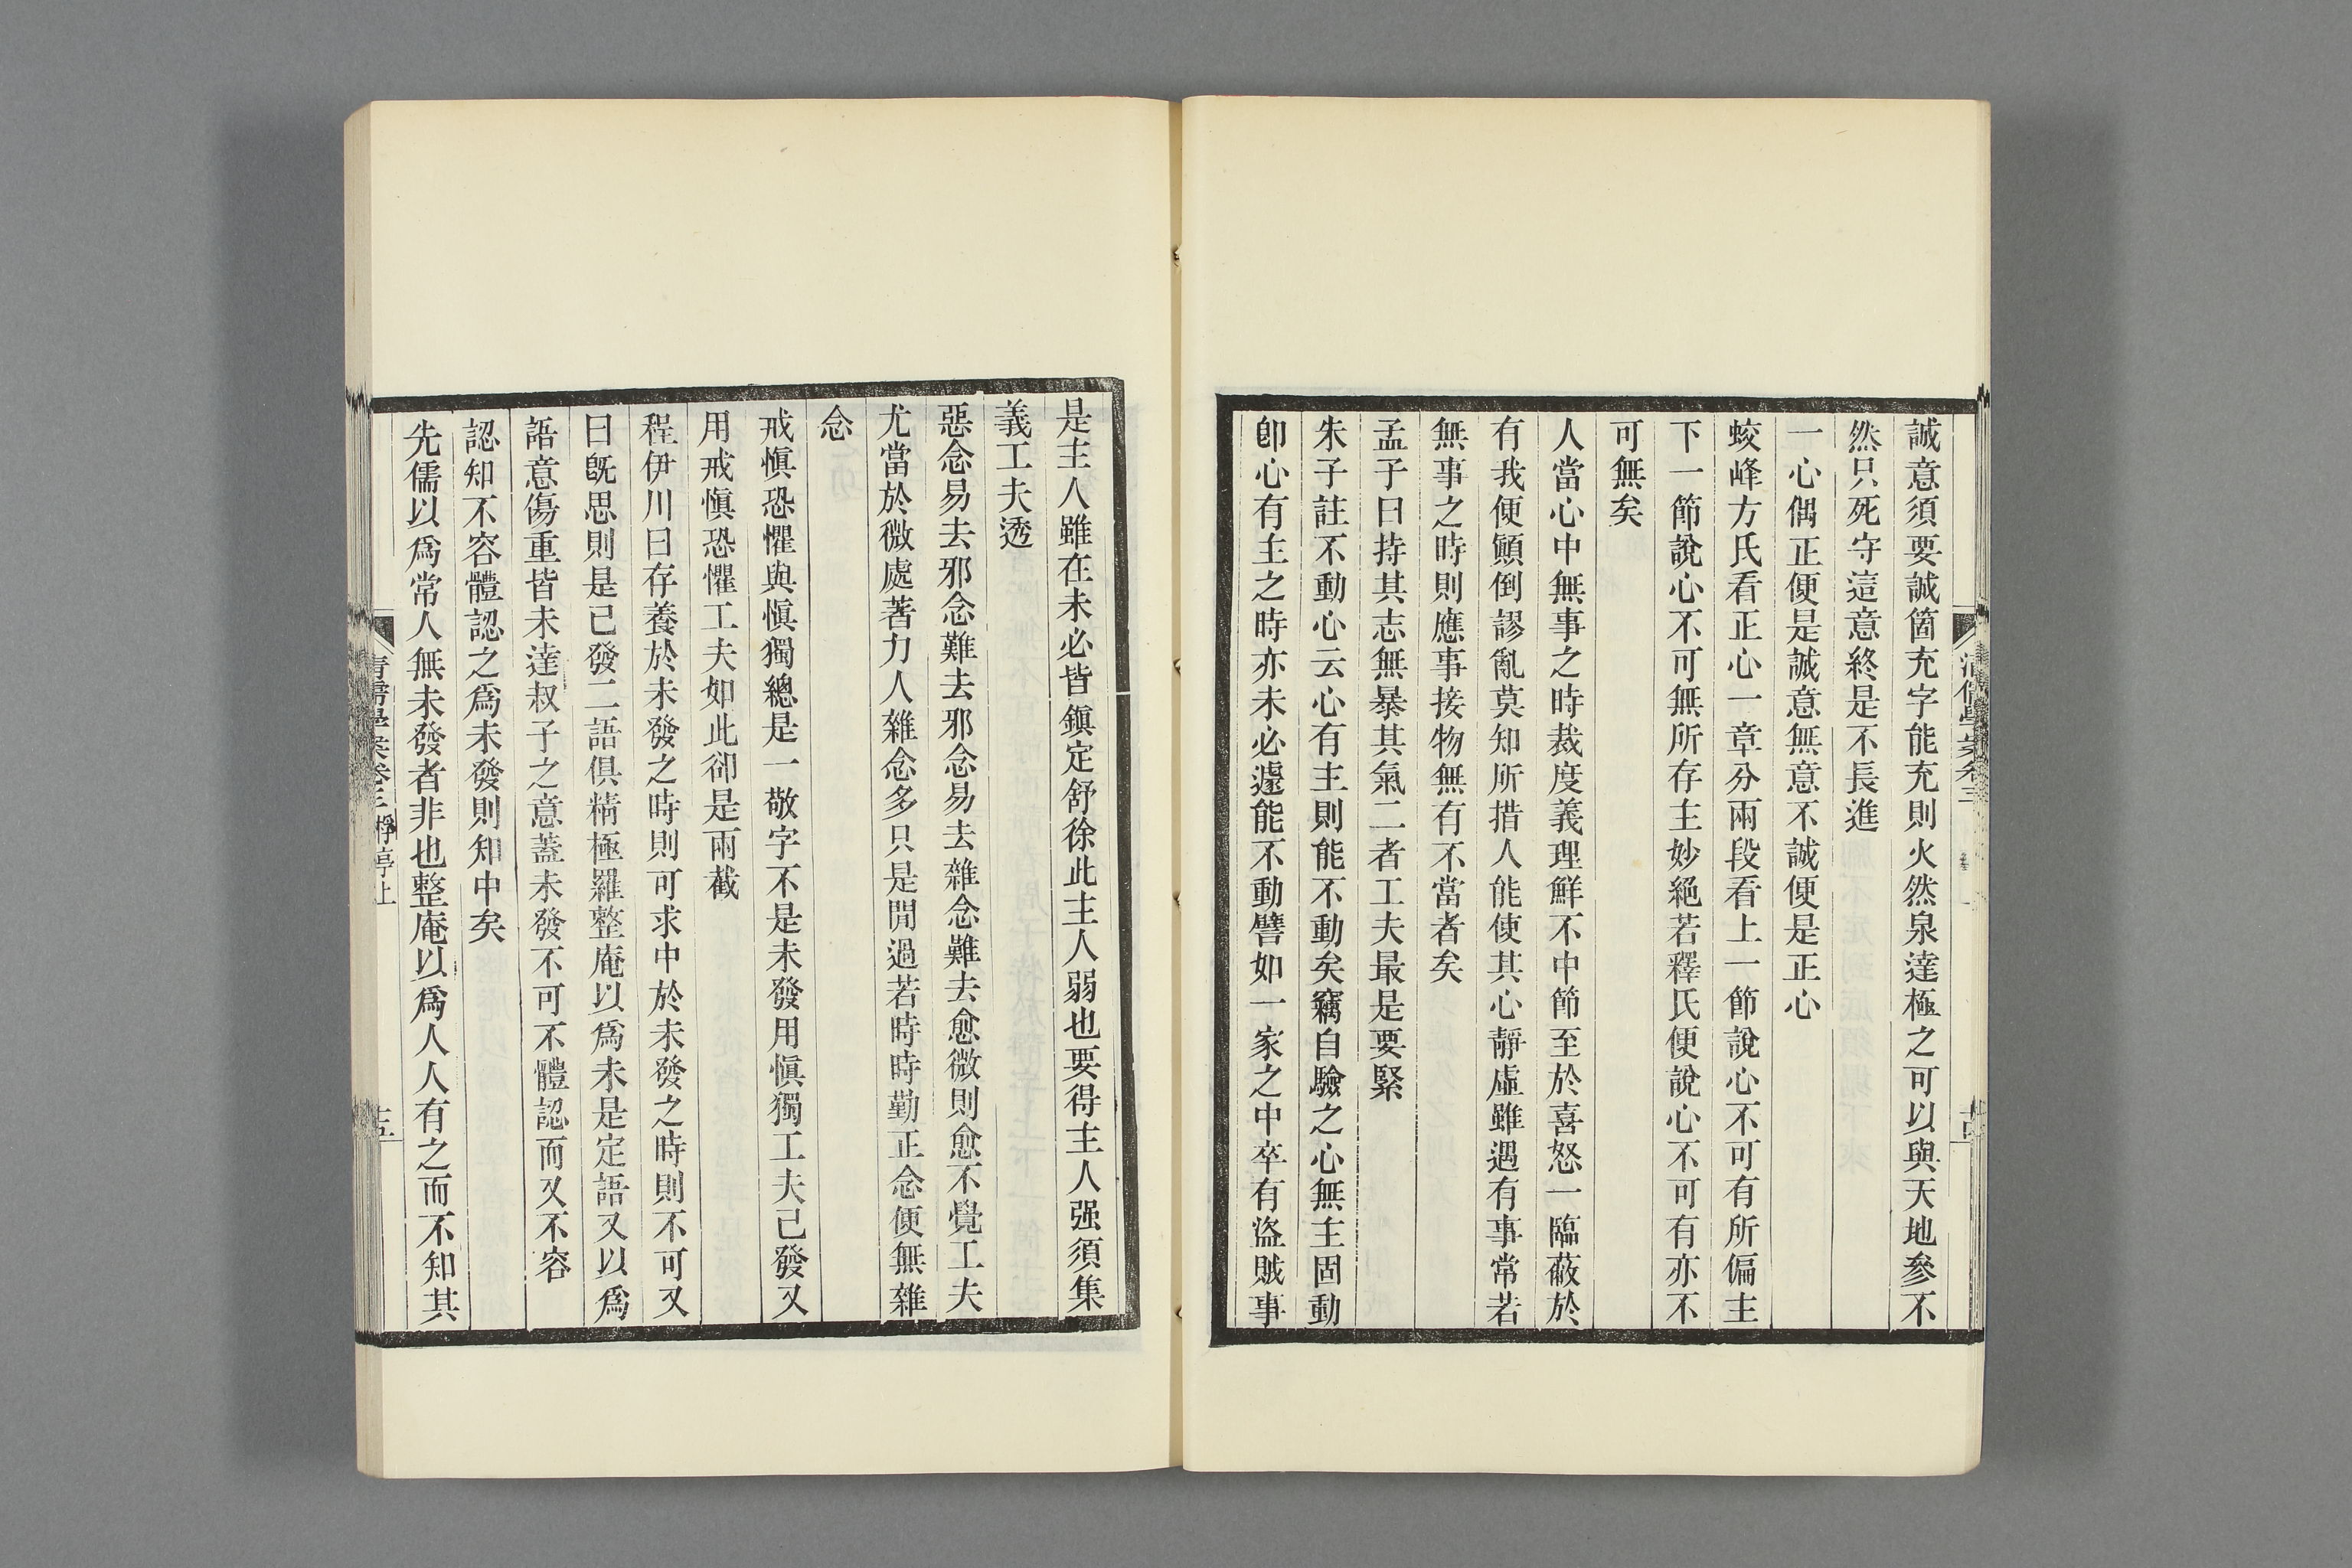 誠意須要誠箇充字能充則火然泉達極之可以與天地參不
然只死守這意終是不長進
一心偶正便是誠意無意不誠便是正心
蛟峰方氏看正心一章分兩段看上一節說心不可有所偏主
下一節說心不可無所存主妙絕若釋氏便說心不可有亦不
可無矣
人當心中無事之時裁度義理鮮不中節至於喜怒一臨蔽於
有我便顚倒謬亂莫知所措人能使其心靜虛雖遇有事常若
無事之時則應事接物無有不當者矣
孟子曰持其志無暴其氣二者工夫最是要緊
朱子註不動心云心有主則能不動矣竊自驗之心無主固動
卽心有主之時亦未必遽能不動譬如一家之中卒有盜賊事
是主人雖在未必皆鎭定舒徐此主人弱也要得主人强須集
義工夫透
惡念易去邪念難去邪念易去雜念難去愈微則愈不覺工夫
尤當於微處著力人雜念多只是閒過若時時勤正念便無雜
念
戒愼恐懼與愼獨總是一敬字不是未發用愼獨工夫已發又
用戒愼恐懼工夫如此卻是兩截
程伊川曰存養於未發之時則可求中於未發之時則不可又
曰旣思則是已發二語俱精極羅整庵以爲未是定語又以爲
語意傷重皆未達叔子之意蓋未發不可不體認而又不容
認知不容體認之爲未發則知中矣
先儒以爲常人無未發者非也整庵以爲人人有之而不知其
清儒學案卷三 桴亭上
十五